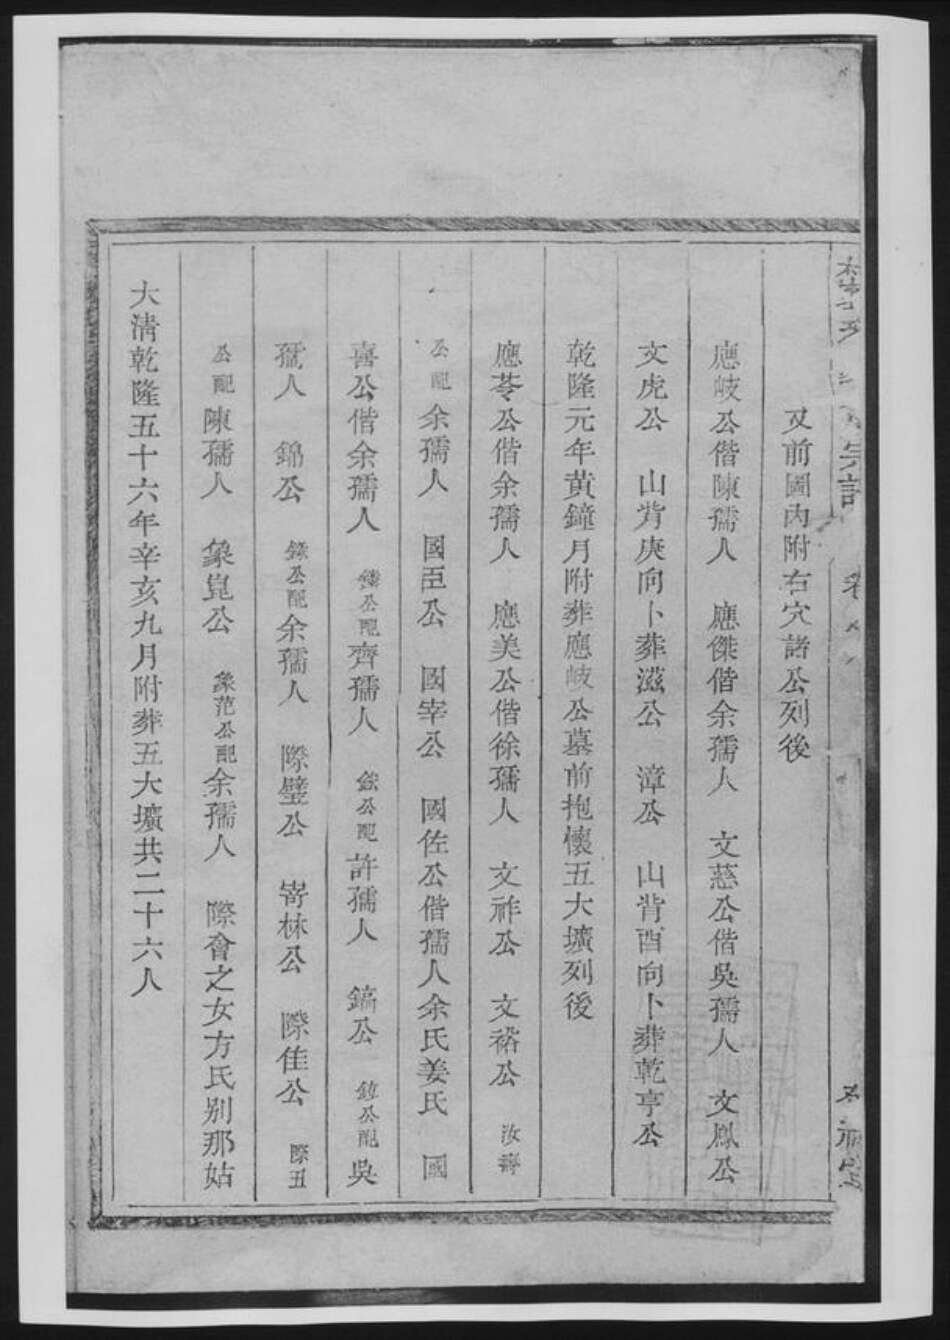 宗譜
卷
又前圖內附右穴諸公列後
應岐公偕陳孺人　應傑偕余孺人　文慈公偕吳孺人　文鳳公
文虎公　山背庚向卜葬滋公　漳公　山背酉向卜葬乾亨公
乾隆元年黃鐘月附葬應岐公墓前抱懷五大壙列後
應苓公偕余孺人　應美公偕徐孺人　文祚公　文裕公　汝壽
公配余孺人　國臣公　國宰公　國佐公偕孺人余氏姜氏　國
喜公偕余孺人　公配齊孺人　公配許孺人　鎬公　公配吳
孺人　錦公　錄公配余孺人　際璧公　嵜林公　際佳公　際丑
公配陳孺人　象崑公　象范公配余孺人　際會之女方氏別那姑
大淸乾隆五十六年辛亥九月附葬五大壙共二十六人